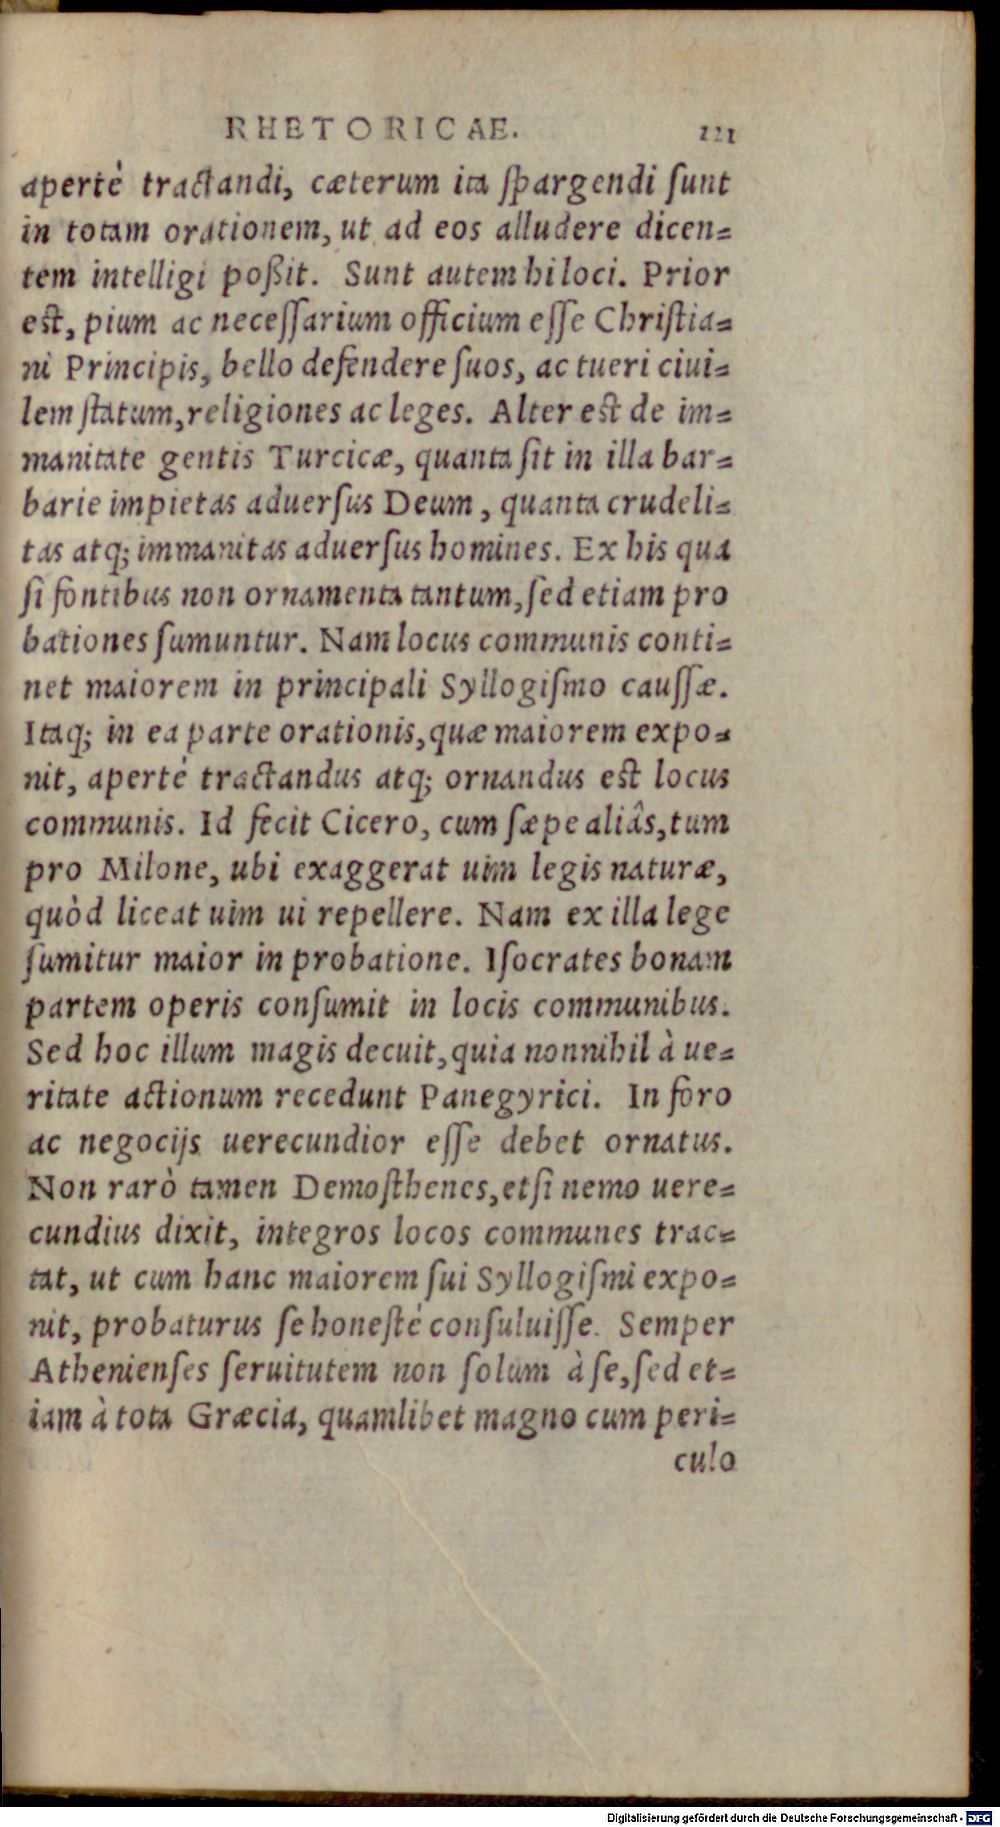 RHETORICAE. 121
apertè tractandi, cæterum ita ſpargendi ſunt
in totam orationem, ut ad eos alludere dicen=
tem intelligi poßit. Sunt autem hi loci. Prior
est, pium ac neceſſarium officium eſſe Chriſtia=
ni Principis, bello defendere ſuos, ac tueri ciui=
lem ſtatum, religiones ac leges. Alter est de im=
manitate gentis Turcicæ, quanta ſit in illa bar=
barie impietas aduerſus Deum, quanta crudeli=
tas atq; immanitas aduerſus homines. Ex his qua
ſi fontibus non ornamenta tantum, ſed etiam pro
bationes ſumuntur. Nam locus communis conti=
net maiorem in principali Syllogiſmo cauſſæ.
Itaq; in ea parte orationis, quæ maiorem expo=
nit, apertè tractandus atq; ornandus est locus
communis. Id fecit Cicero, cum ſæpe aliâs, tum
pro Milone, ubi exaggerat uim legis naturæ,
quòd liceat uim ui repellere. Nam ex illa lege
ſumitur maior in probatione. Iſocrates bonam
partem operis conſumit in locis communibus.
Sed hoc illum magis decuit, quia nonnihil à ue=
ritate actionum recedunt Panegyrici. In foro
ac negocijs uerecundior eſſe debet ornatus.
Non rarò tamen Demoſthenes, etſi nemo uere=
cundius dixit, integros locos communes trac=
tat, ut cum hanc maiorem ſui Syllogiſmi expo=
nit, probaturus ſe honeſtè conſuluiſſe. Semper
Athenienſes ſeruitutem non ſolum à ſe, ſed et=
iam à tota Græcia, quamlibet magno cum peri=
culo
Digitalisierung gefördert durch die Deutsche Forschungsgemeinschaft - DFG